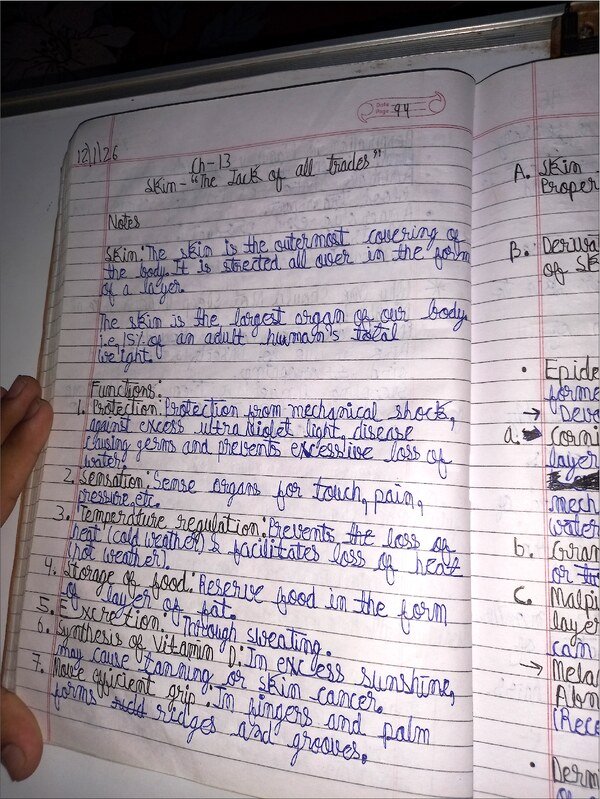 Date
Page 94
12/1/26
Ch-13
Skin - "The Jack of all trades"
Notes
Skin: The skin is the outermost covering of
the body. It is stected all over in the form
of a layer.
The skin is the largest organ of our body
i.e. 15% of an adult human's total
weight.
Functions:
1. Protection: Protection from mechanical shock,
against excess ultra violet light, disease
causing germs and prevents excessive loss of
water.
2. Sensation: Sense organs for touch, pain,
pressure, etc.
3. Temperature regulation: Prevents the loss of
heat (cold weather) & facilitates loss of heat
(hot weather).
4. Storage of food: Reserve food in the form
of layer of fat.
5. Excretion: Through sweating.
6. Synthesis of Vitamin D: In excess sunshine,
may cause tanning or skin cancer.
7. More efficient grip. In fingers and palm
forms ridges and grooves.
A. Skin
Proper
B. Deriva
of Sk
• Epide
forme
→ Devo
a. Corni
layer
mech
water
b. Gran
or
c. Malpi
layer
can
→ Mela
Alon
(Rece
• Derm